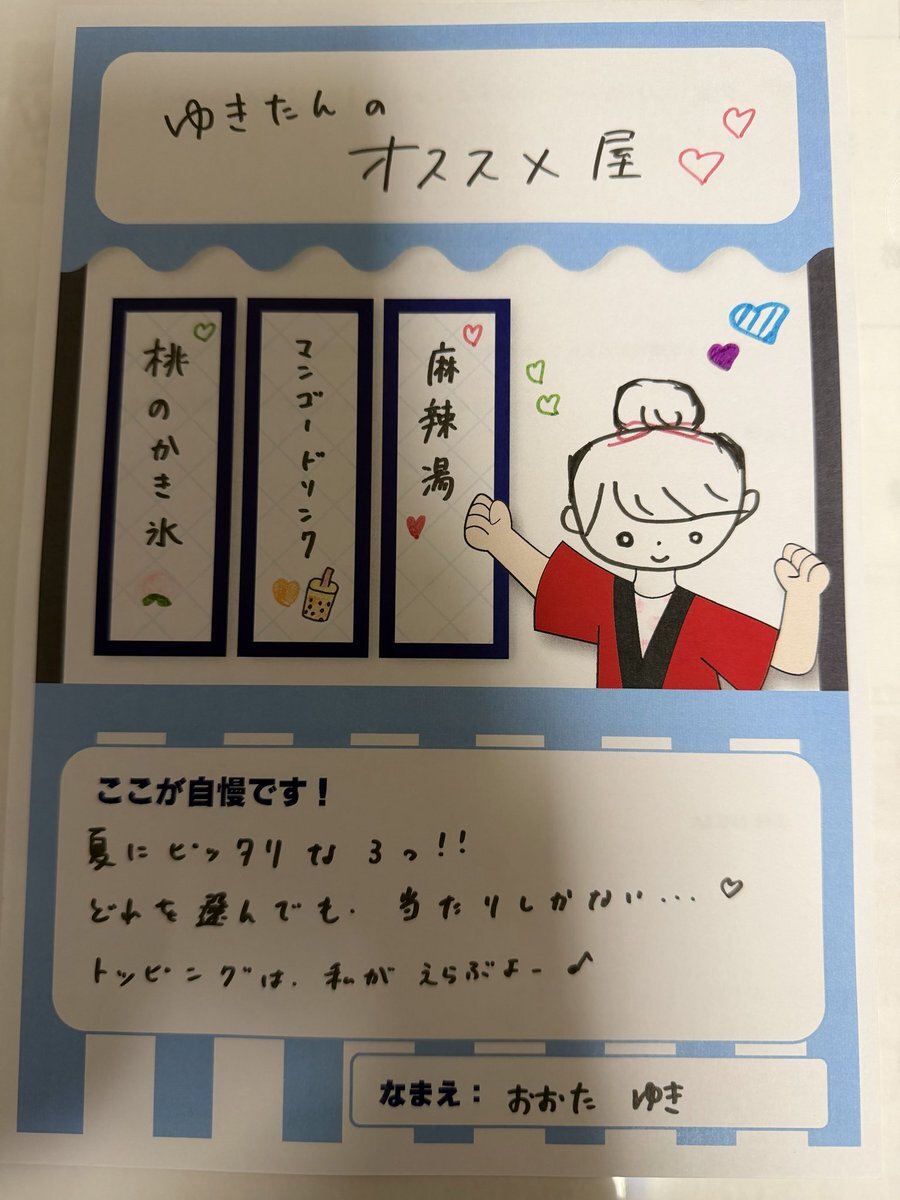 ゆきたんの
オススメ屋
麻辣湯
マンゴードリンク
桃のかき氷
ここが自慢です！
夏にピッタリな3つ!!
どれを選んでも、当たりしかない...♡
トッピングは、私がえらぶよー♪
なまえ：おおた ゆき